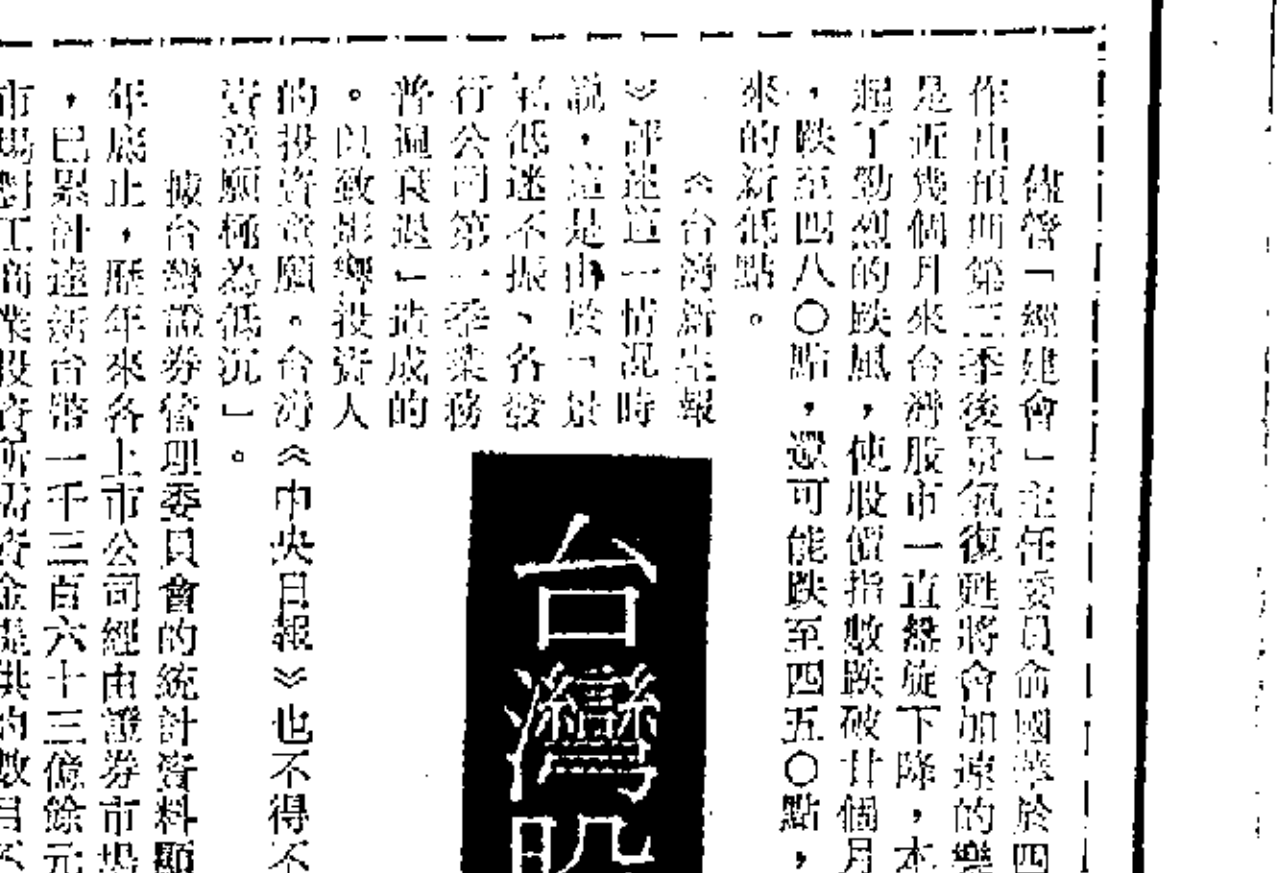 儘管「經建會」主任委員俞國華於四
作出預期第三季後景氣復甦將會加速的樂
是近幾個月來台灣股市一直盤旋下降，本
起了勁烈的跌風，使股價指數跌破廿個月
，跌至四八〇點，還可能跌至四五〇點，
來的新低點。
《台灣新生報
》評述這一情況時
說，這是由於「景
氣低迷不振、各發
行公司第一季業務
普遍衰退」造成的
。以致影響投資人
的投資意願。台灣《中央日報》也不得不
資意願極為低沉」。
據台灣證券管理委員會的統計資料顯
年底止，歷年來各上市公司經由證券市場
，已累計達新台幣一千三百六十三億餘元
市場對工商業投資所需資金提供的數目不
台灣股